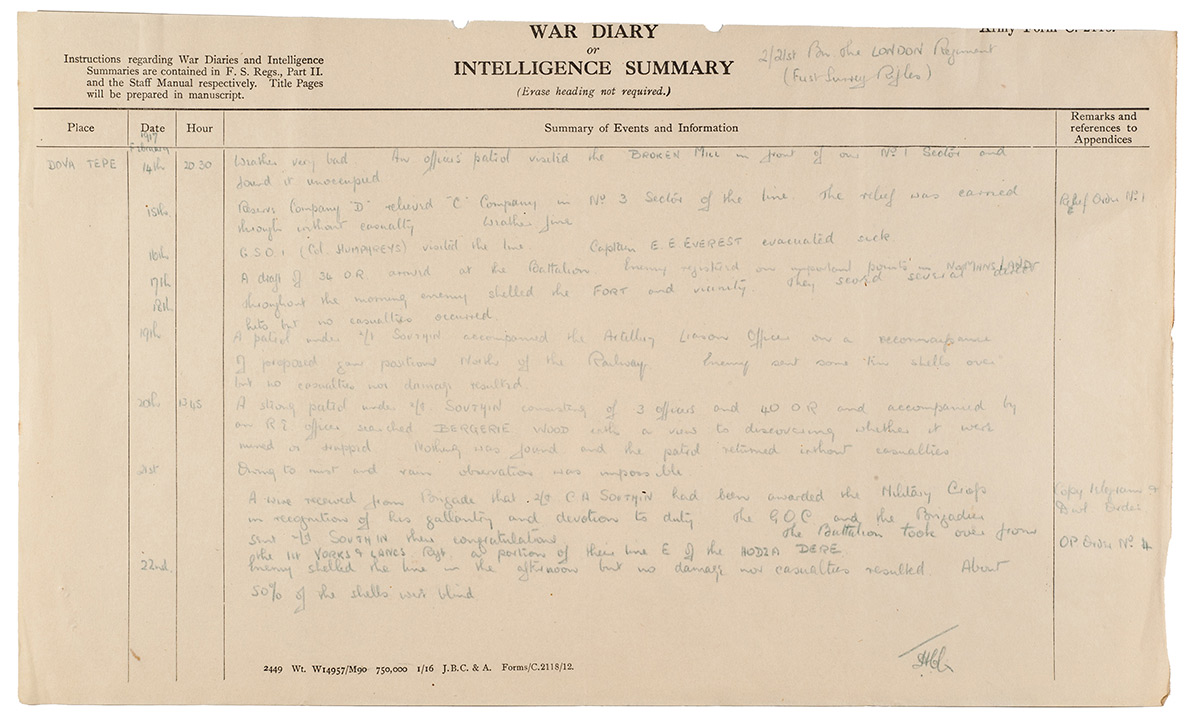 WAR DIARY
or
INTELLIGENCE SUMMARY
(Erase heading not required.)
Army Form C. 2118.
Instructions regarding War Diaries and Intelligence
Summaries are contained in F. S. Regs., Part II.
and the Staff Manual respectively. Title Pages
will be prepared in manuscript.
2/21st Bn. The LONDON Regiment
(First Surrey Rifles)
Place Date Hour Summary of Events and Information Remarks and references to Appendices
1917
February
DOVA TEPE 14th 20 30 Weather very bad. An officers patrol visited the BROKEN MILL in front of our No 1 Sector and
found it unoccupied
15th Reserve Company "D" relieved "C" Company in No 3 Sector of the line. The relief was carried Relief Order No 1
through without casualty Weather fine
16th G.S.O.1 (Col. HUMPHREYS) visited the line. Captain E.E. EVEREST evacuated sick
17th A draft of 34 O.R. arrived at the Battalion. Enemy registered on important points in
18th throughout the morning enemy shelled the FORT and vicinity. They scored several direct
hits but no casualties occurred.
19th A patrol under 2/Lt SOUTHIN accompanied the Artillery Liaison Officer on a reconnaissance
of proposed gun positions North of the Railway. Enemy sent some shells over
but no casualties nor damage resulted
20th A strong patrol under 2/Lt SOUTHIN consisting of 3 officers and 40 O R and accompanied by
an R E officer searched BERGERIE WOOD with a view to discovering whether it were
mined or trapped Nothing was found and the patrol returned without casualties
21st Owing to mist and rain observation was impossible
A wire received from Brigade that 2/Lt C A SOUTHIN had been awarded the Military Cross Copy telegram &
in recognition of his gallantry and devotion to duty The GOC and the Brigadier Order
sent 2/Lt SOUTHIN their congratulations The Battalion took over from
the 1st YORKS & LANCS Regt. a portion of their line E of the HODZA DERE. OP. Order No 4
22nd. Enemy shelled the line in the afternoon but no damage nor casualties resulted. About
50% of the shells were blind
2449 Wt. W14957/M90 750,000 1/16 J.B.C. & A. Forms/C.2118/12.